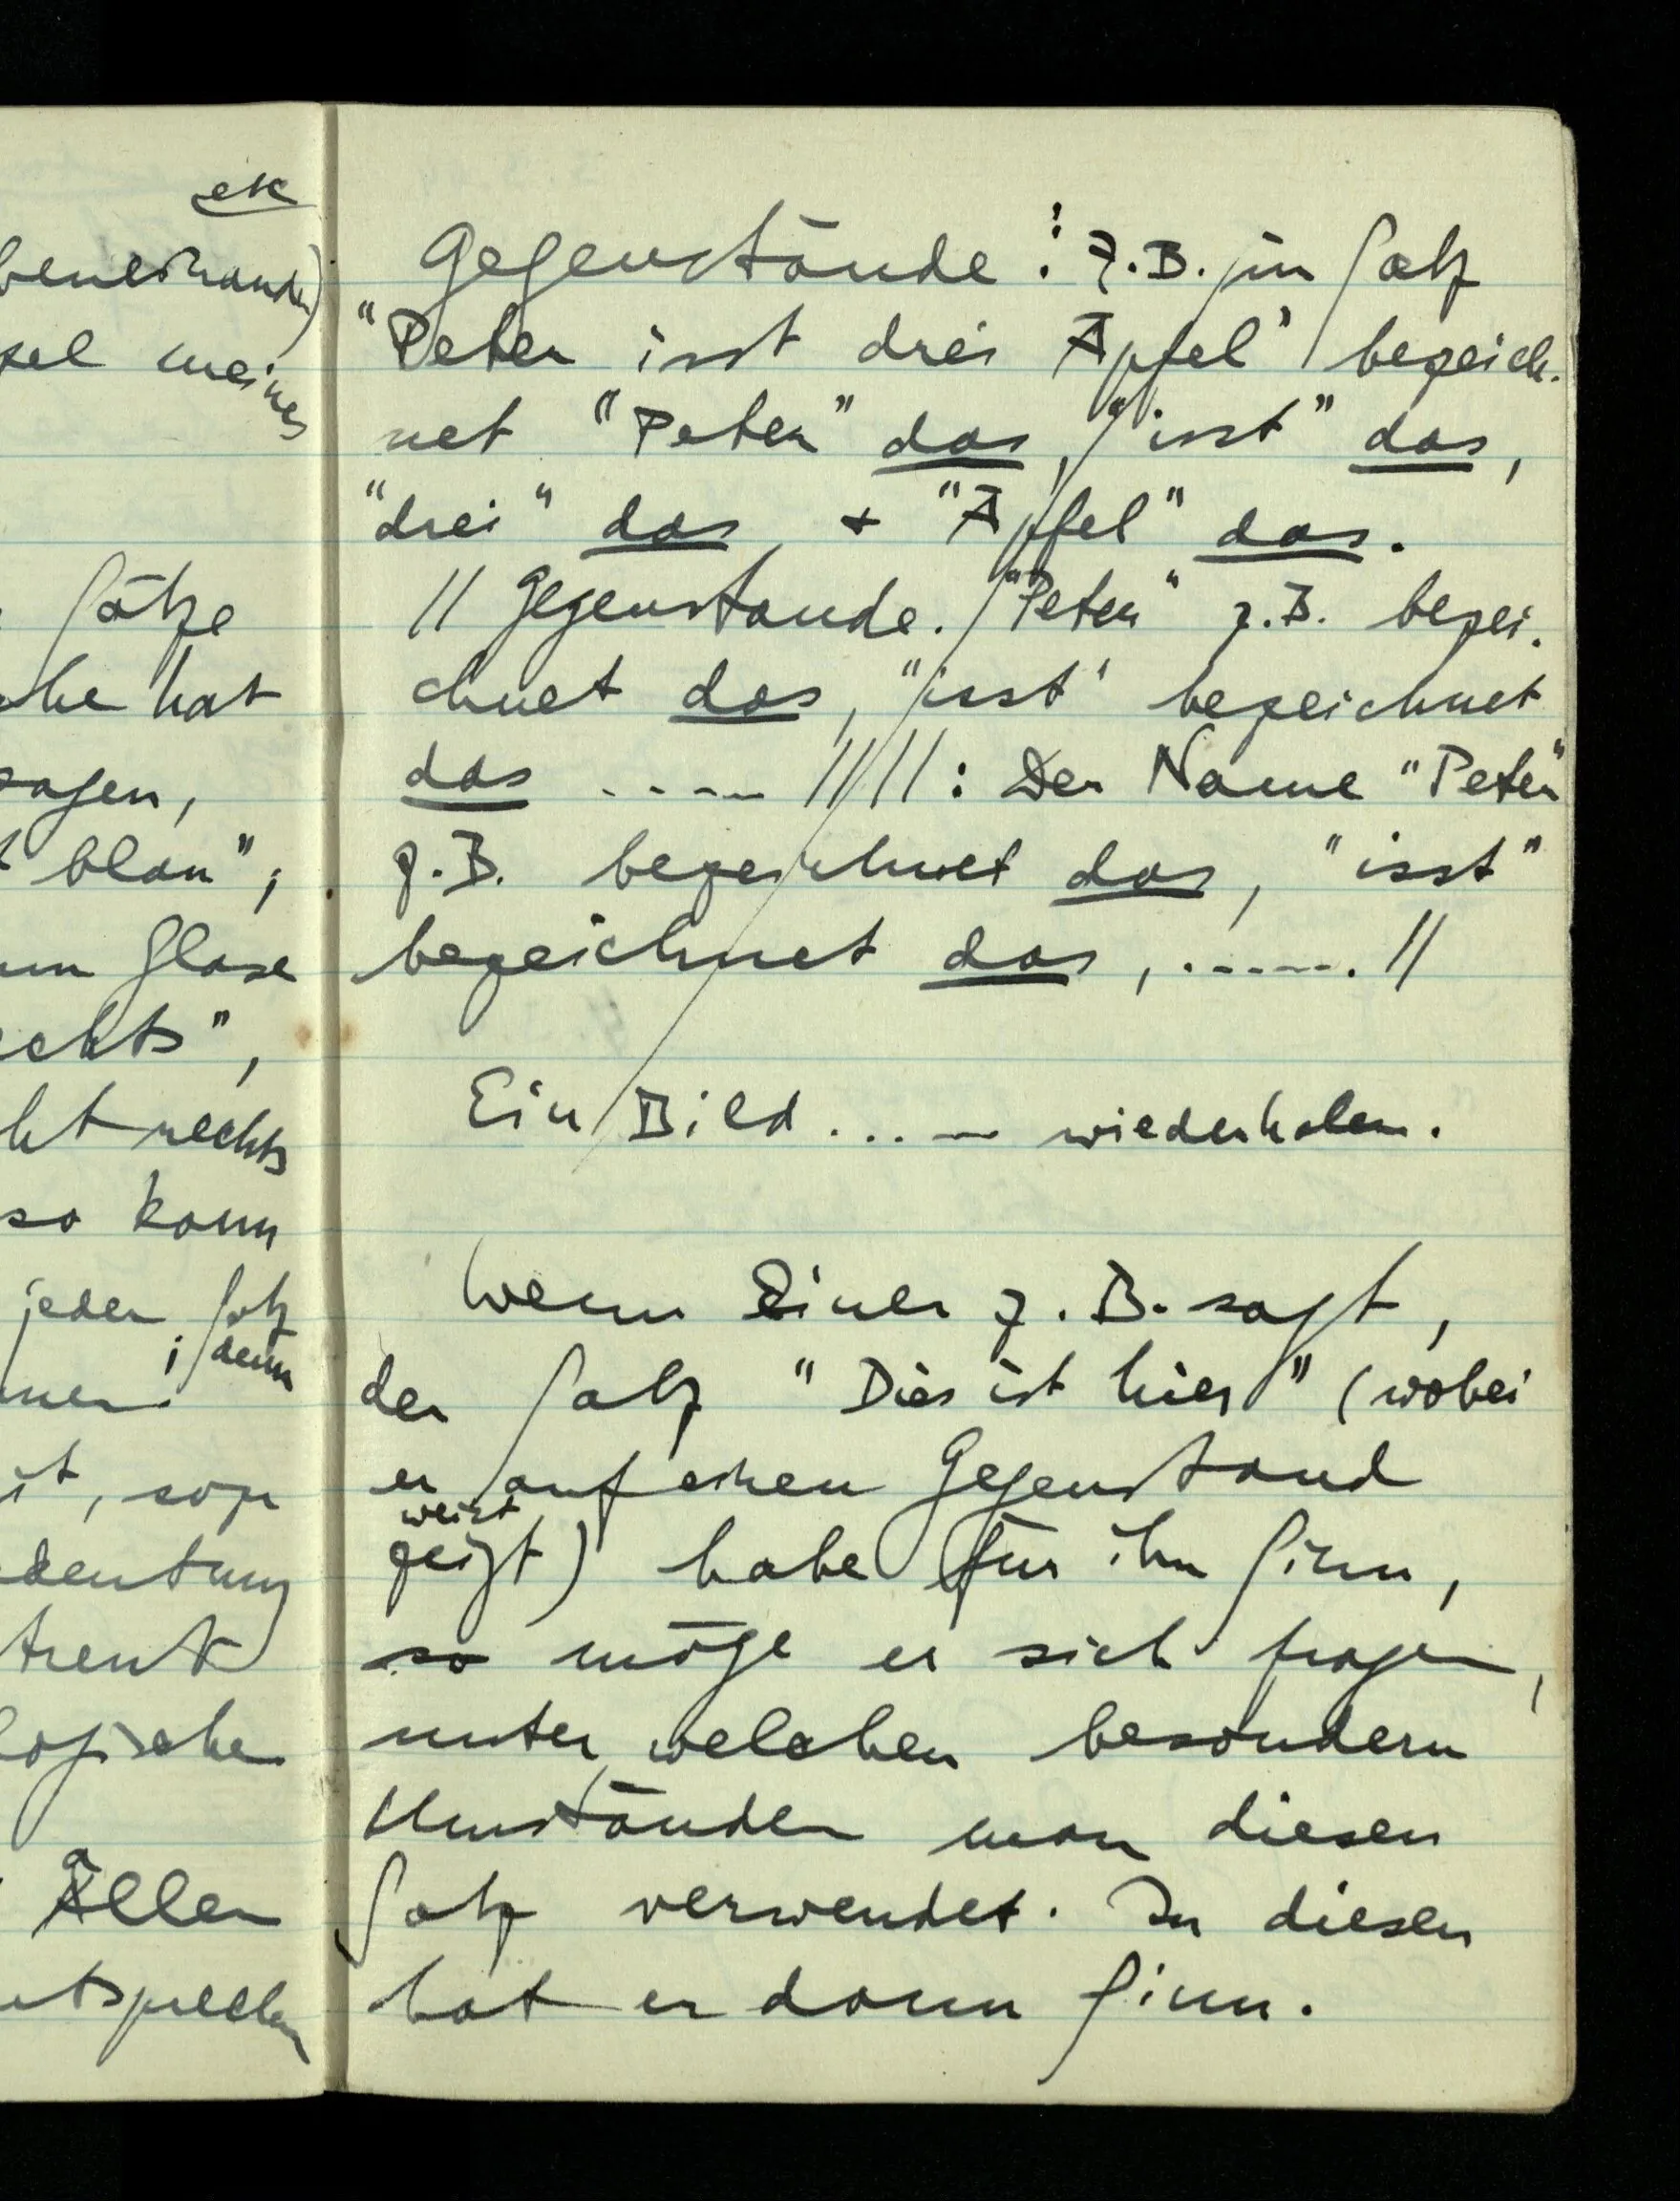 etc
sel meines
Sätze
che hat
sagen,
blau";
um Glase
echts",
ht rechts
so kann
jeder Satz
; denn
it, sog
deutung
trenk
logische
a
Allen
ntsprechen
Gegenstände: z.B. im Satz
"Peter isst drei Äpfel" bezeich-
net "Peter" das, "isst" das,
"drei" das & "Äpfel" das.
// Gegenstände. "Peter" z.B. bezei-
chnet das, "isst" bezeichnet
das ..... // //: Der Name "Peter"
z.B. bezeichnet das, "isst"
bezeichnet das, ...... //
Ein Bild .... wiederholen.
Wenn Einer z.B. sagt,
der Satz "Dies ist hier" (wobei
er auf einen Gegenstand
weist
zeigt) habe für ihn Sinn,
so möge er sich fragen,
unter welchen besondern
Umständen man diesen
Satz verwendet. In diesen
hat er dann Sinn.